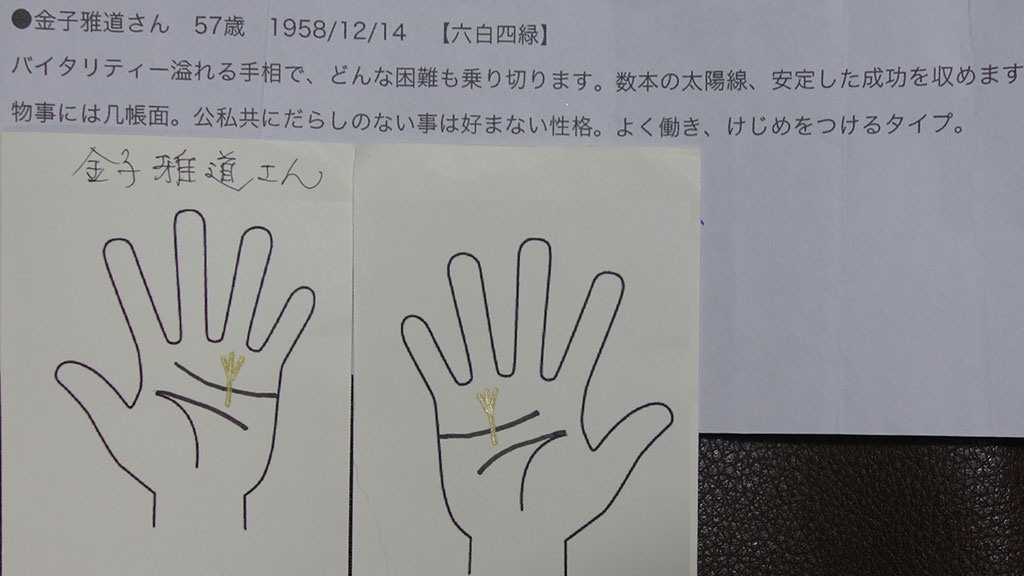 ●金子雅道さん　57歳　1958/12/14　【六白四緑】
バイタリティー溢れる手相で、どんな困難も乗り切ります。数本の太陽線、安定した成功を収めます
物事には几帳面。公私共にだらしのない事は好まない性格。よく働き、けじめをつけるタイプ。
金子雅道さん